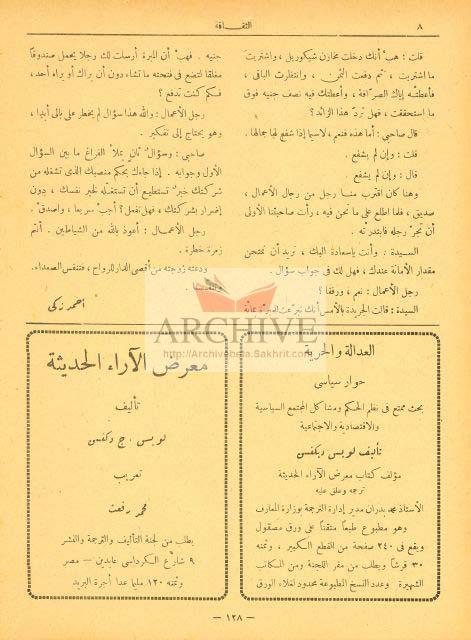 ٨
الثقافة
قلت : هب أنك دخلت مخازن شيكوريل ، واشتريت
ما اشتريت ، ثم دفعت الثمن ، وانتظرت الباقى ،
فأعطتك إياه الصرّافة ، وأعطتك فيه نصف جنيه فوق
ما استحققت ، فهل تردّ هذا الزائد ؟
قال صاحبى : أما هذه فنعم ، لاسيما إذا شفع لها جمالها .
قلت : وإن لم يشفع .
قال : وإن لم يشفع .
وهنا كان اقترب منا رجل من رجال الأعمال ،
صديق ، فلما اطلع على ما نحن فيه ، رأت صاحبتنا الأولى
أن تجرّ رجله فابتدرته .
السيدة : وأنت ياسعادة البك ، نريد أن نمتحن
مقدار الأمانة عندك ، فهل لك فى جواب سؤال .
رجل الأعمال : نعم ، ورفقا ؟
السيدة : قالت الجريدة بالأمس أنك تبرعت للمبرّة بمائة
جنيه . فهب أن المبرة أرسلت لك رجلا يحمل صندوقا
مغلقا لتضع فى فتحته ما تشاء دون أن يراك أو يراه أحد ،
فسكم كنت تدفع ؟
رجل الأعمال : والله هذا سؤال لم يخطر على بالى أبدا ،
وهو يحتاج إلى تفكير .
صاحبى : وسؤال ثان يملأ الفراغ ما بين السؤال
الأول وجوابه . إذا جاءك بحكم منصبك الذى تشغله من
شركتك خبر تستطيع أن تستغله لخير نفسك ، دون
إضرار بشركتك ، فهل تفعل ؟ أجب سريعا ، واصدق .
رجل الأعمال : أعوذ بالله من الشياطين . أنتم
زمرة خطرة .
ودعته زوجته من أقصى الدار للرواح ، فتنفس الصعداء .
وتنفسنا .
أحمد زكى
ARCHIVE
http://Archivebeta.Sakhrit.com
العدالة والحرية
حوار سياسى
بحث ممتع فى نظم الحكم ومشاكل المجتمع السياسية
والاقتصادية والاجتماعية
تأليف لويس ديكنسن
مؤلف كتاب معرض الآراء الحديثة
ترجمه وعلق عليه
الأستاذ محمد بدران مدير إدارة الترجمة بوزارة المعارف
وهو مطبوع طبعاً متقناً على ورق مصقول
ويقع فى ٢٤٠ صفحة من القطع الكبير ، وثمنه
٣٠ قرشاً ويطلب من مقر اللجنة ومن المكاتب
الشهيرة وعدد النسخ المطبوعة محدود لغلاء الورق
معرض الآراء الحديثة
تأليف
لويس . ج . دكنسن
تعريب
محمد رفعت
يطلب من لجنة التأليف والترجمة والنشر
٩ شارع الكرداسى عابدين — مصر
وثمنه ١٢٠ مليما عدا أجرة البريد
— ١٢٨ —